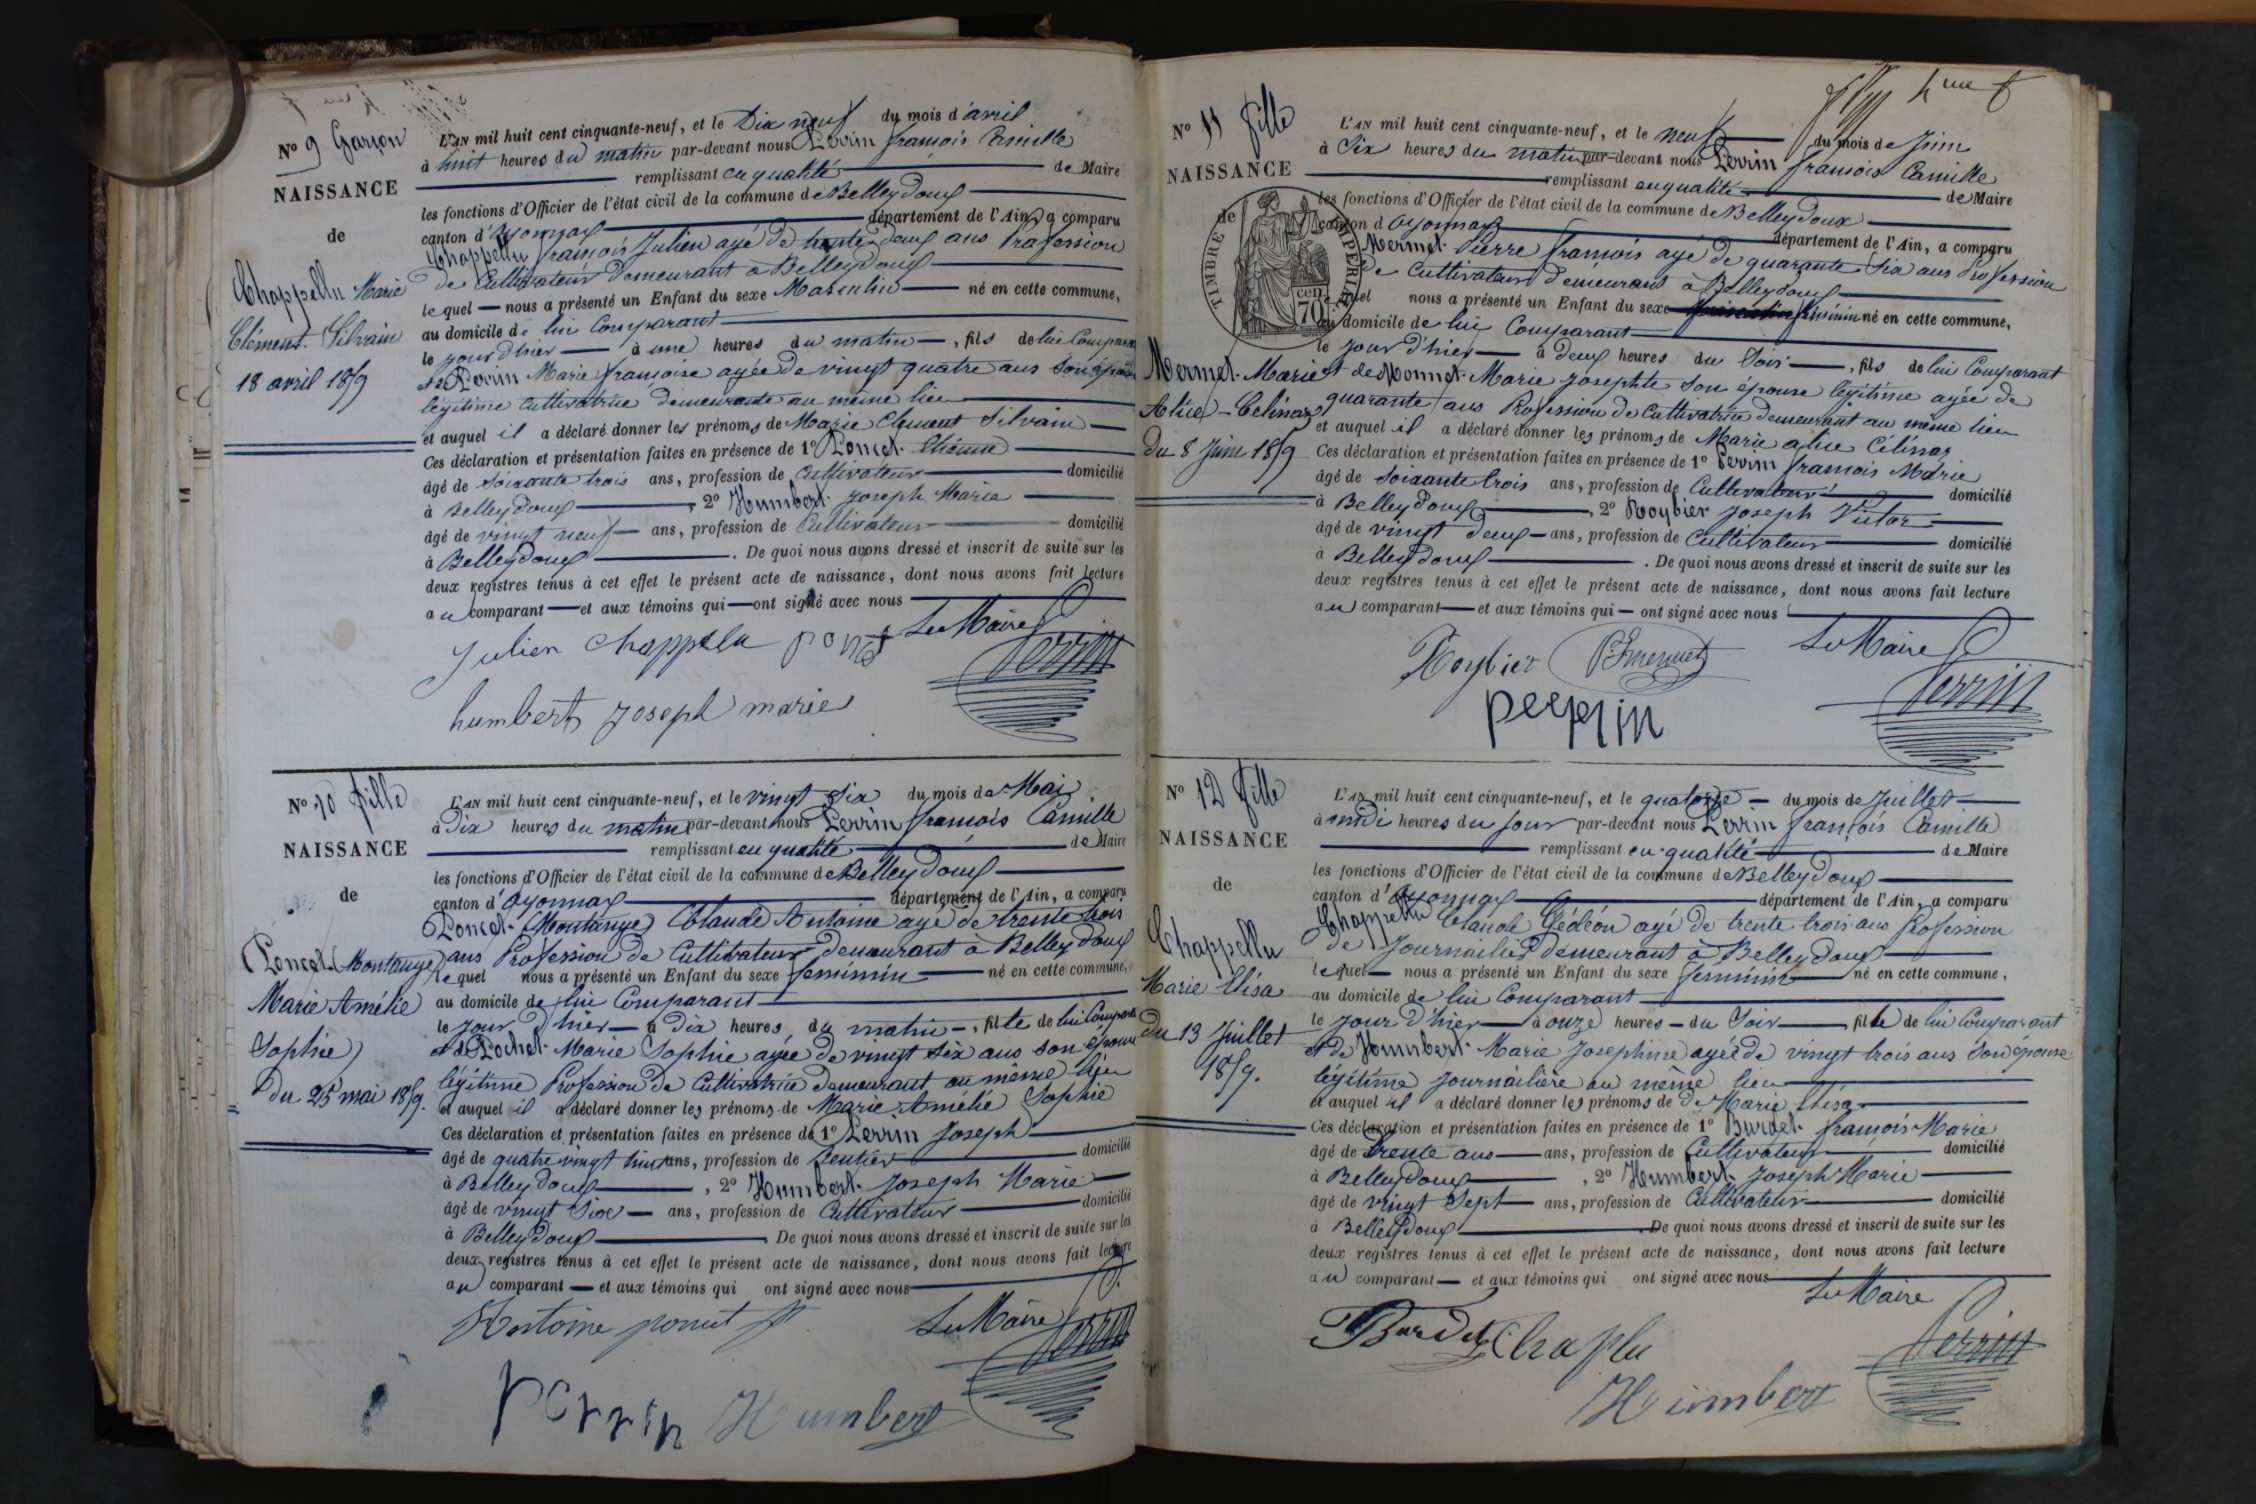 N° 9 Garçon
NAISSANCE
de
Chappellu Marie
Clément Silvain
18 avril 1859
L'AN mil huit cent cinquante-neuf, et le Dix neuf du mois d'avril
à huit heures du matin par-devant nous Perrin françois Camille
remplissant en qualité de Maire
les fonctions d'Officier de l'état civil de la commune de Belleydoux
canton d'oyonnax département de l'Ain, a comparu
Chappellu françois Julien agé de trente deux ans Profession
de Cultivateur demeurant à Belleydoux
lequel nous a présenté un Enfant du sexe Masculin né en cette commune,
au domicile de lui Comparant
le jour d'hier à une heures du matin, fils de lui Comparant
et de Perrin Marie françoise agée de vingt quatre ans son épouse
légitime cultivatrice demeurante au même lieu
et auquel il a déclaré donner les prénoms de Marie Clement Silvain
Ces déclaration et présentation faites en présence de 1° Poncet Etienne
âgé de soixante trois ans, profession de Cultivateur domicilié
à Belleydoux, 2° Humbert Joseph Marie
âgé de vingt neuf ans, profession de Cultivateur domicilié
à Belleydoux. De quoi nous avons dressé et inscrit de suite sur les
deux registres tenus à cet effet le présent acte de naissance, dont nous avons fait lecture
au comparant et aux témoins qui ont signé avec nous
Julien Chappelu poncet Le Maire Perrin
humbert joseph marie
N° 10 fille
NAISSANCE
de
Poncet (Montange)
Marie Amélie
Sophie
du 25 mai 1859.
L'AN mil huit cent cinquante-neuf, et le vingt six du mois de Mai
à Dix heures du matin par-devant nous Perrin françois Camille
remplissant en qualité de Maire
les fonctions d'Officier de l'état civil de la commune de Belleydoux
canton d'oyonnax département de l'Ain, a comparu
Poncet (Montange) Claude Antoine agé de trente trois
ans Profession de Cultivateur demeurant à Belleydoux
lequel nous a présenté un Enfant du sexe féminin né en cette commune,
au domicile de lui Comparant
le jour d'hier à Dix heures du matin, fille de lui Comparant
et de Rochet Marie Sophie agée de vingt six ans son épouse
légitime Profession de Cultivatrice demeurant au même lieu
et auquel il a déclaré donner les prénoms de Marie Amélie Sophie
Ces déclaration et présentation faites en présence de 1° Perrin Joseph
âgé de quatre vingt huit ans, profession de Rentier domicilié
à Belleydoux, 2° Humbert Joseph Marie
âgé de vingt Six ans, profession de Cultivateur domicilié
à Belleydoux, De quoi nous avons dressé et inscrit de suite sur les
deux registres tenus à cet effet le présent acte de naissance, dont nous avons fait lecture
au comparant et aux témoins qui ont signé avec nous
Antoine poncet Le Maire Perrin
perrin Humbert
N° 11 fille
NAISSANCE
de
TIMBRE IMPERIAL
70 cen
Mermet Marie
Alice Célina
Du 8 Juin 1859
L'AN mil huit cent cinquante-neuf, et le neuf du mois de Juin
à Six heures du matin par-devant nous Perrin françois Camille
remplissant en qualité de Maire
les fonctions d'Officier de l'état civil de la commune de Belleydoux
canton d'oyonnax département de l'Ain, a comparu
Mermet Pierre françois agé de quarante Six ans Profession
de Cultivateur demeurant à Belleydoux
lequel nous a présenté un Enfant du sexe masculin féminin né en cette commune,
au domicile de lui Comparant
le jour d'hier à deux heures du Soir, fils de lui Comparant
et de Monnet Marie Josephte son épouse légitime agée de
quarante ans Profession de Cultivatrice demeurant au même lieu
et auquel il a déclaré donner les prénoms de Marie alice Célina
Ces déclaration et présentation faites en présence de 1° Perrin françois Marie
âgé de Soixante trois ans, profession de Cultivateur domicilié
à Belleydoux, 2° Roybier Joseph Victor
âgé de vingt deux ans, profession de Cultivateur domicilié
à Belleydoux. De quoi nous avons dressé et inscrit de suite sur les
deux registres tenus à cet effet le présent acte de naissance, dont nous avons fait lecture
au comparant et aux témoins qui ont signé avec nous
Roybier Pfmermet Le Maire Perrin
perrin
N° 12 fille
NAISSANCE
de
Chappellu
Marie Elisa
du 13 Juillet
1859.
L'AN mil huit cent cinquante-neuf, et le quatorze du mois de Juillet
à midi heures du jour par-devant nous Perrin françois Camille
remplissant en qualité de Maire
les fonctions d'Officier de l'état civil de la commune de Belleydoux
canton d'Oyonnax département de l'Ain, a comparu
Chappellu Claude Gédéon agé de trente trois ans Profession
de Journailier demeurant à Belleydoux
lequel nous a présenté un Enfant du sexe féminin né en cette commune,
au domicile de lui Comparant
le jour d'hier à onze heures du Soir fille de lui Comparant
et de Humbert Marie Josephine agée de vingt trois ans son épouse
légitime journailière au même lieu
et auquel il a déclaré donner les prénoms de de Marie Elisa
Ces déclaration et présentation faites en présence de 1° Burdet françois Marie
âgé de Trente ans ans, profession de Cultivateur domicilié
à Belleydoux, 2° Humbert Joseph Marie
âgé de vingt Sept ans, profession de Cultivateur domicilié
à Belleydoux De quoi nous avons dressé et inscrit de suite sur les
deux registres tenus à cet effet le présent acte de naissance, dont nous avons fait lecture
au comparant et aux témoins qui ont signé avec nous
Le Maire
Burdet Chaplu Perrin
Humbert